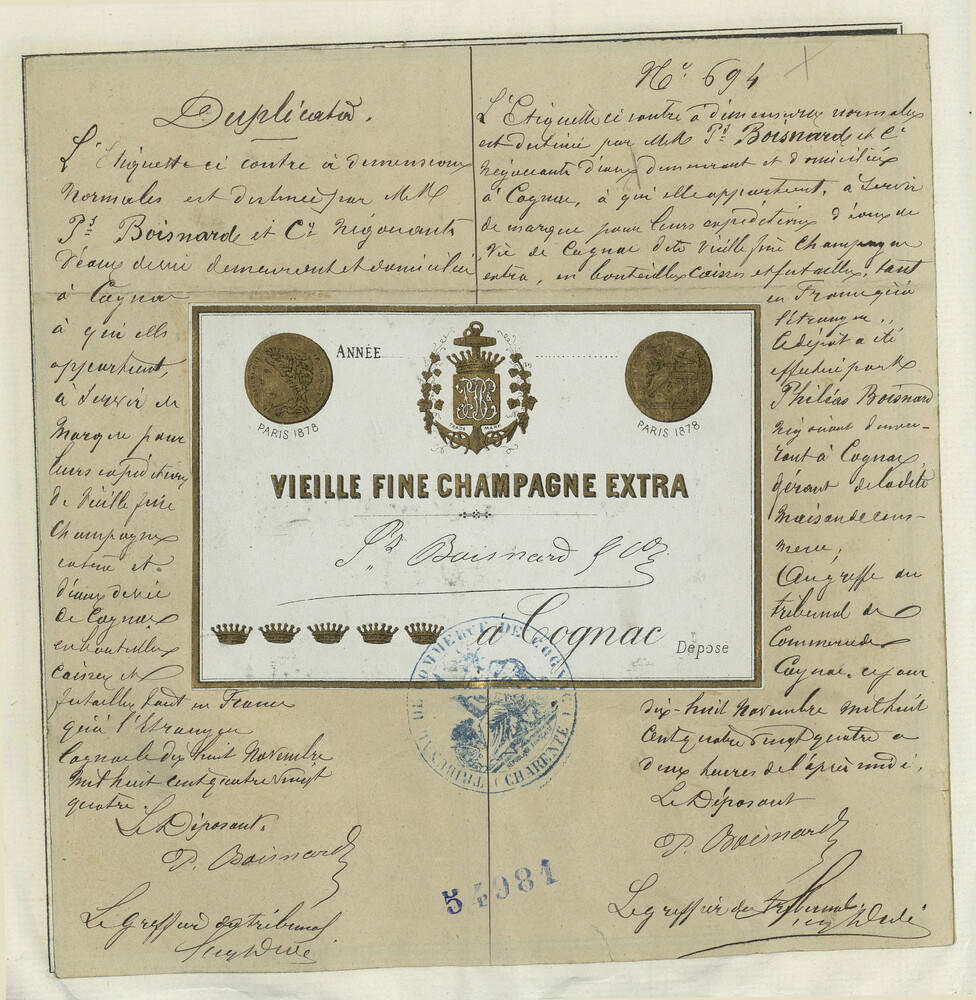 Duplicata.
L'Etiquette ci contre à dimensions
Normales est destinée par MM
Ps Boisnard et Cie Négociants
d'eaux de vie demeurant et domiciliés
à Cognac
à qui elle
appartient,
à servir de
Marque pour
leurs expéditions
de Vieille fine
Champagne
extra et
d'eaux de vie
de Cognac
en bouteilles
caisses et
futailles tant en France
qu'à l'Etranger
Cognac le dix huit Novembre
mil huit cent quatre vingt
quatre.
Le Déposant.
P. Boisnard
Le Greffier du tribunal
No 694
L'Etiquette ci contre à dimensions normales
est destinée par MM Ps Boisnard et Cie
Négociants d'eaux de vie demeurant et domiciliés
à Cognac, à qui elle appartient, à servir
de marque pour leurs expéditions d'eaux de
vie de Cognac dite Vieille fine Champagne
extra, en bouteilles caisses et futailles, tant
en France qu'à
l'étranger.
Le dépôt a été
effectué par M
Philéas Boisnard
négociant demeu-
rant à Cognac,
gérant de la dite
Maison de com-
merce,
Au greffe du
tribunal de
Commerce de
Cognac, ce jour
dix-huit Novembre mil huit
cent quatre vingt quatre à
deux heures de l'après midi.
Le Déposant
P. Boisnard
Le greffier du tribunal
ANNÉE
PARIS 1878
TRADE MARK
PARIS 1878
VIEILLE FINE CHAMPAGNE EXTRA
Ps Boisnard & Co
à Cognac
Déposé
TRIBUNAL DE COMMERCE DE COGNAC (CHARENTE)
54981